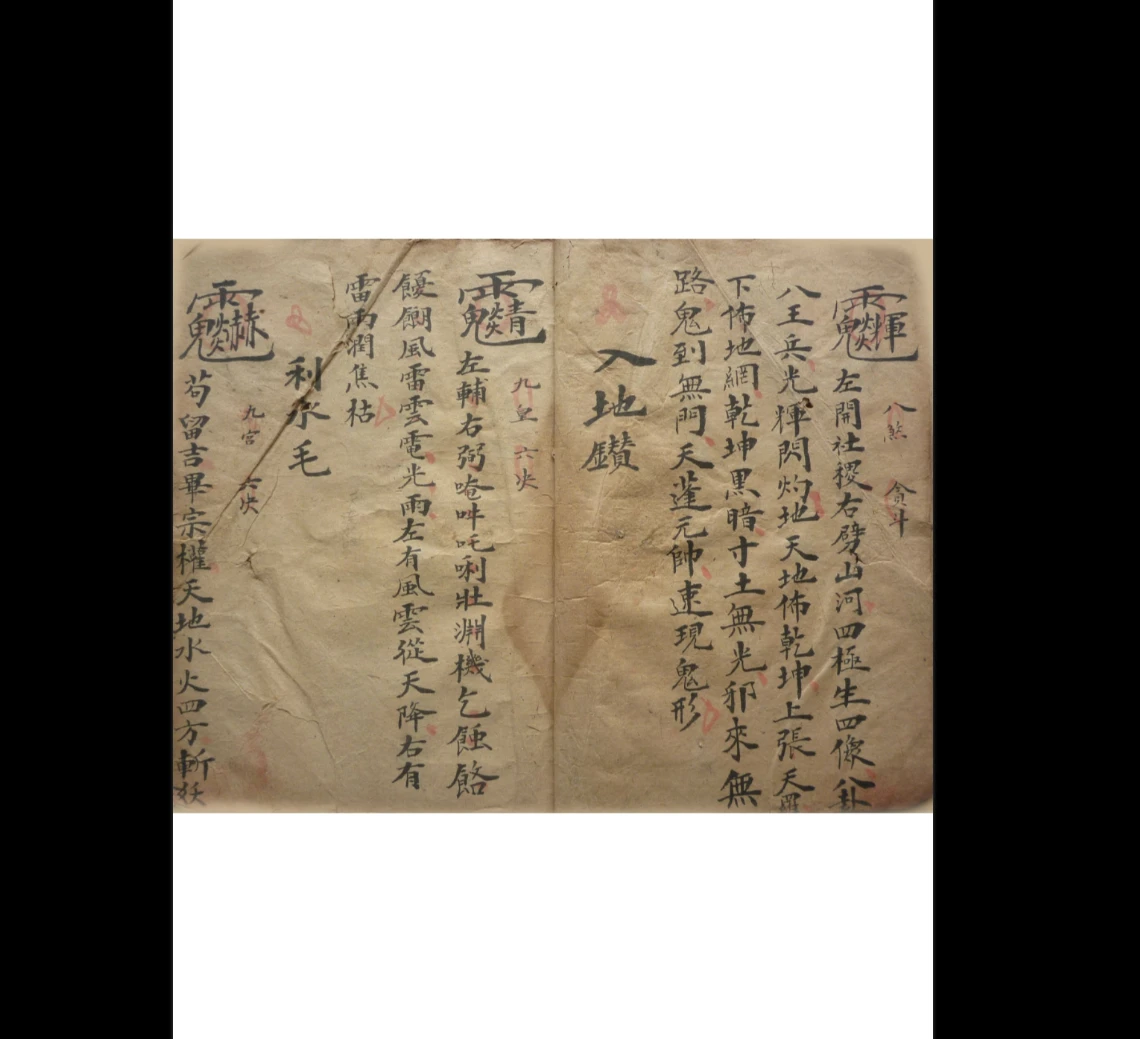 八煞 貪斗
左開社稷右劈山河四極生四像八卦
八王兵光輝閃灼地天地佈乾坤上張天羅
下佈地網乾坤黑暗寸土無光邪來無
路鬼到無門天蓬元帥速現鬼形
入地鑽
九皇 六央
左輔右弼唵吽吒唎壯淵機乞蝕餎
風雷雲電光雨左有風雲從天降右有
雷雨潤焦枯
利水毛
九宮 六央
茍留吉畢宗權天地水火四方斬妖